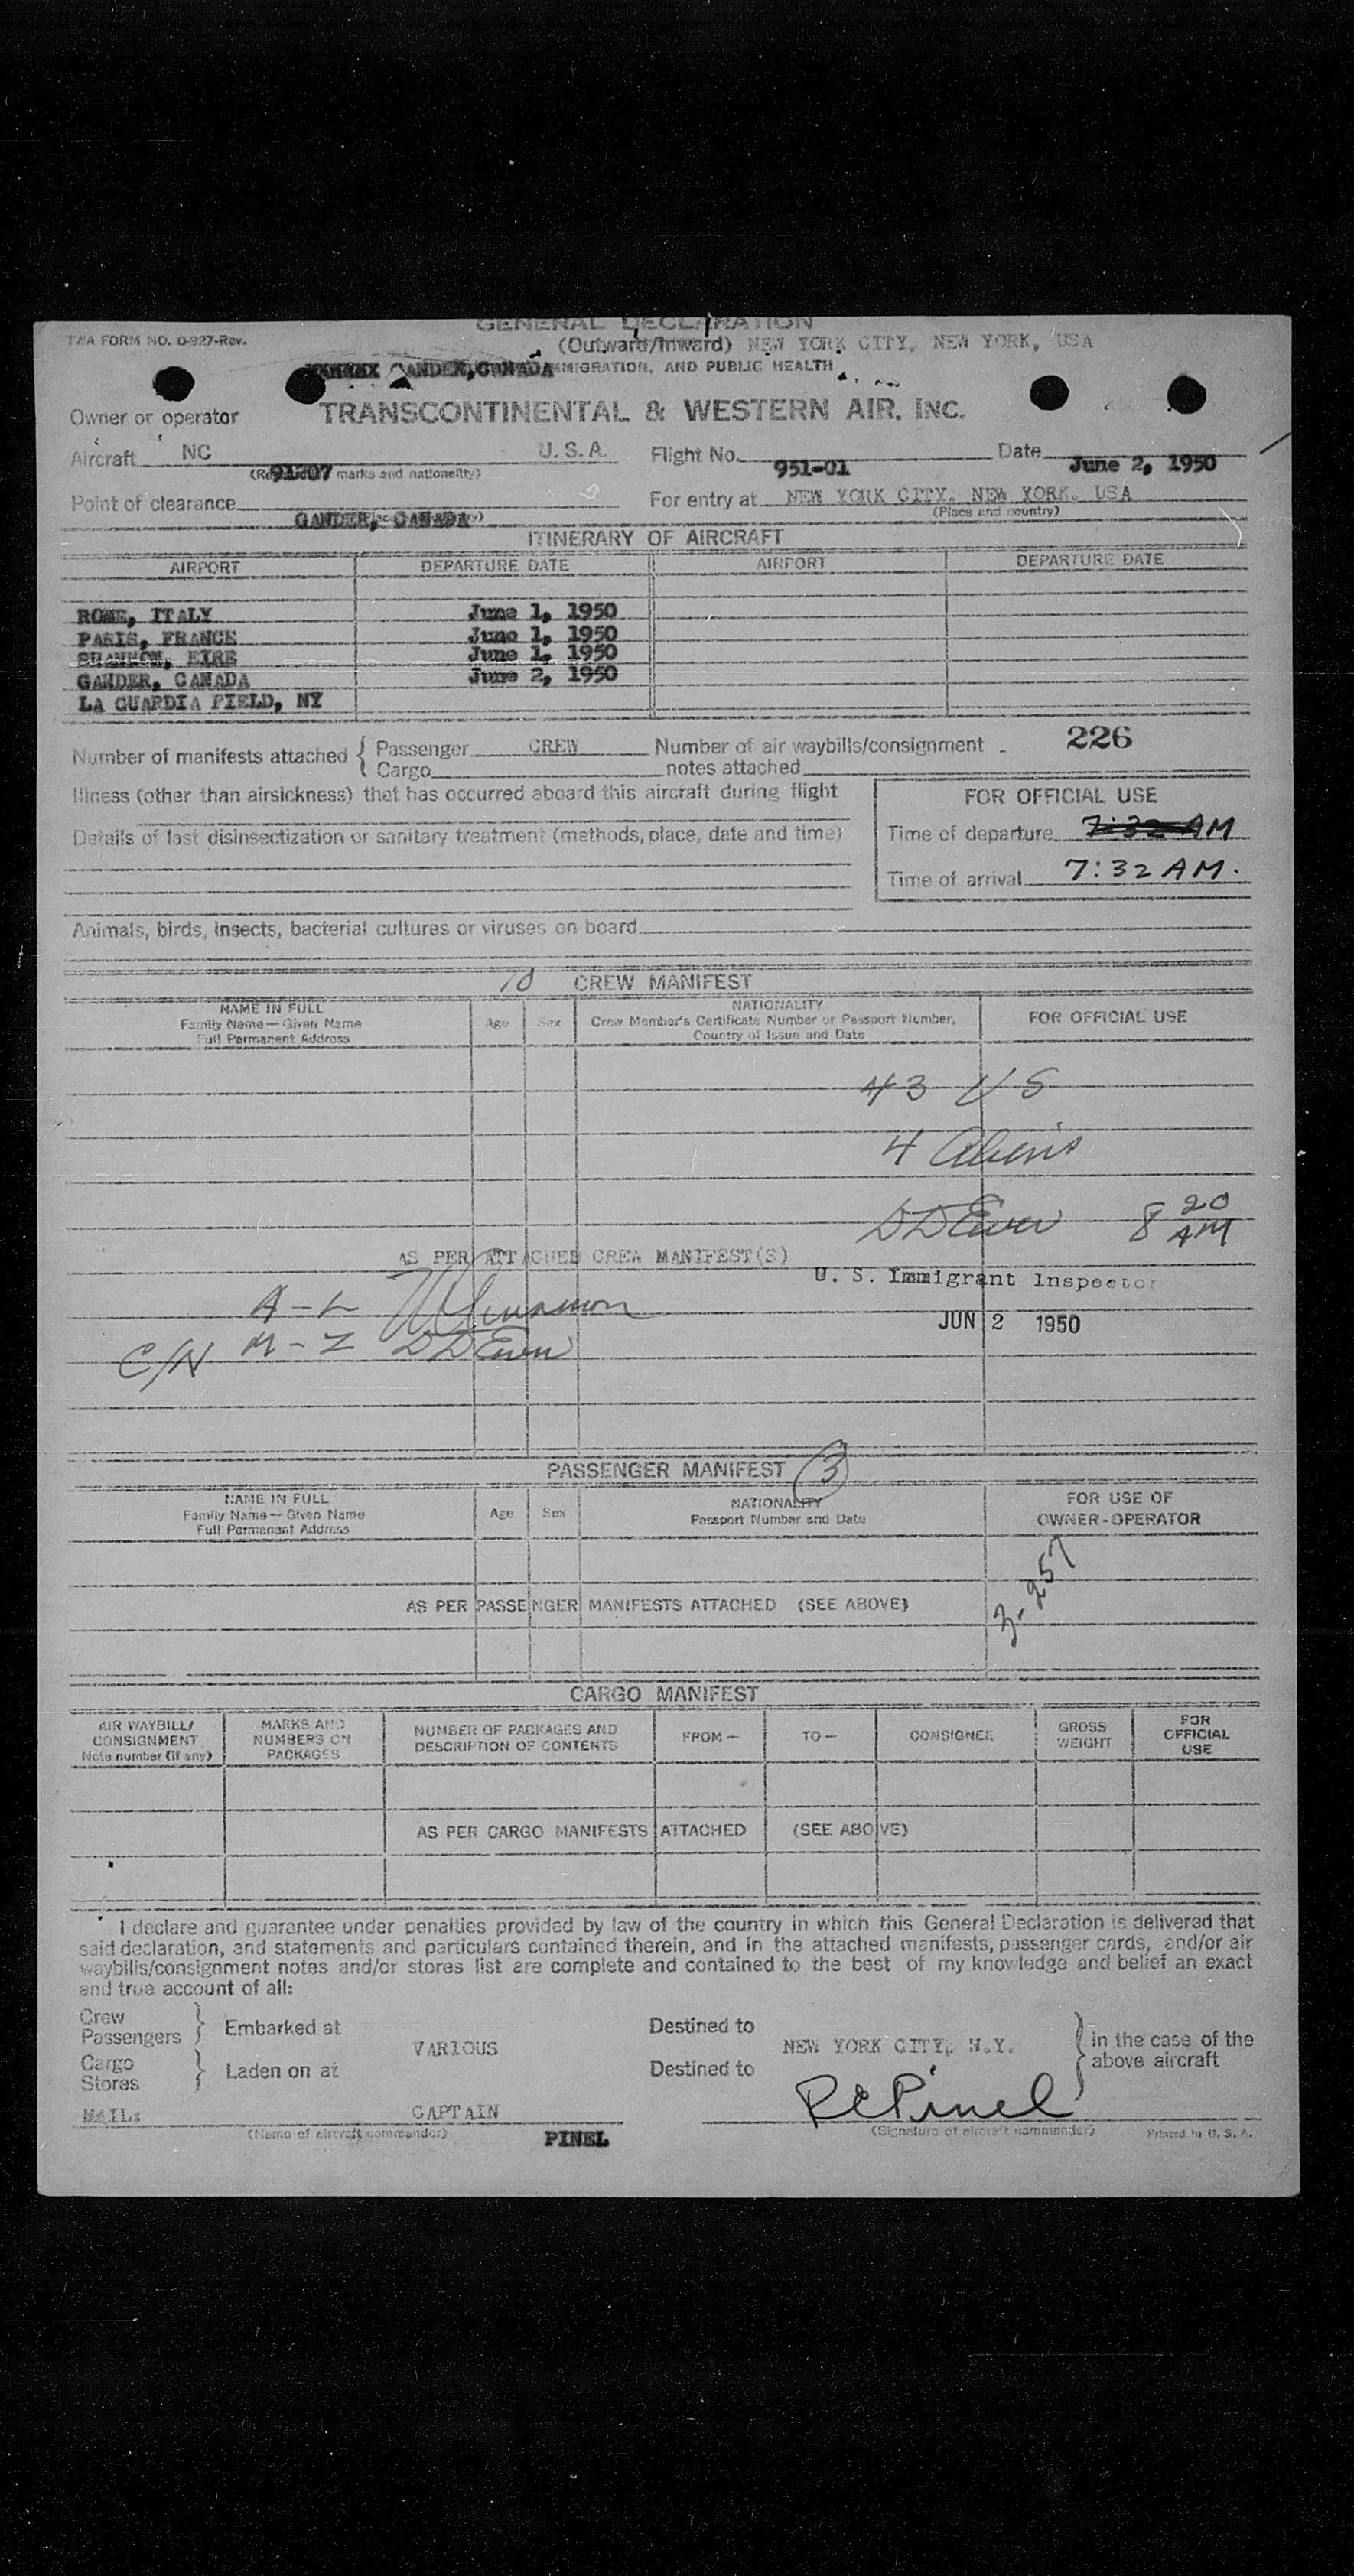 GENERAL DECLARATION
TWA FORM NO. 0-927-Rev.
(Outward/Inward) NEW YORK CITY, NEW YORK, USA
GANDER, CANADA IMMIGRATION, AND PUBLIC HEALTH
Owner or operator TRANSCONTINENTAL & WESTERN AIR, INC.
Aircraft NC 91207 U.S.A. Flight No. 951-01 Date June 2, 1950
marks and nationality)
Point of clearance GANDER, CANADA For entry at NEW YORK CITY, NEW YORK, USA
(Place and country)
ITINERARY OF AIRCRAFT
AIRPORT DEPARTURE DATE AIRPORT DEPARTURE DATE
ROME, ITALY June 1, 1950
PARIS, FRANCE June 1, 1950
SHANNON, EIRE June 1, 1950
GANDER, CANADA June 2, 1950
LA GUARDIA FIELD, NY
226
Number of manifests attached { Passenger CREW Number of air waybills/consignment
Cargo notes attached
Illness (other than airsickness) that has occurred aboard this aircraft during flight
FOR OFFICIAL USE
Details of last disinsectization or sanitary treatment (methods, place, date and time)
Time of departure 7:32 AM
Time of arrival 7:32 AM.
Animals, birds, insects, bacterial cultures or viruses on board
10 CREW MANIFEST
NAME IN FULL
Family Name—Given Name
Full Permanent Address
Age Sex
NATIONALITY
Crew Member's Certificate Number or Passport Number,
Country of Issue and Date
FOR OFFICIAL USE
43 US
4 Aliens
DD Ewen 8 20 AM
AS PER ATTACHED CREW MANIFEST(S)
U. S. Immigrant Inspector
A-L
JUN 2 1950
C/N M-Z DD Ewen
PASSENGER MANIFEST 3
NAME IN FULL
Family Name—Given Name
Full Permanent Address
Age Sex
NATIONALITY
Passport Number and Date
FOR USE OF
OWNER-OPERATOR
AS PER PASSENGER MANIFESTS ATTACHED (SEE ABOVE)
CARGO MANIFEST
AIR WAYBILL/
CONSIGNMENT
Note number (if any)
MARKS AND
NUMBERS ON
PACKAGES
NUMBER OF PACKAGES AND
DESCRIPTION OF CONTENTS
FROM— TO— CONSIGNEE
GROSS
WEIGHT
FOR
OFFICIAL
USE
AS PER CARGO MANIFESTS ATTACHED (SEE ABOVE)
I declare and guarantee under penalties provided by law of the country in which this General Declaration is delivered that
said declaration, and statements and particulars contained therein, and in the attached manifests, passenger cards, and/or air
waybills/consignment notes and/or stores list are complete and contained to the best of my knowledge and belief an exact
and true account of all:
Crew
Passengers } Embarked at VARIOUS Destined to NEW YORK CITY, N.Y. } in the case of the
above aircraft
Cargo
Stores } Laden on at Destined to
MAIL: CAPTAIN PINEL R C Pinel
(Name of aircraft commander) (Signature of aircraft commander) Printed in U. S. A.